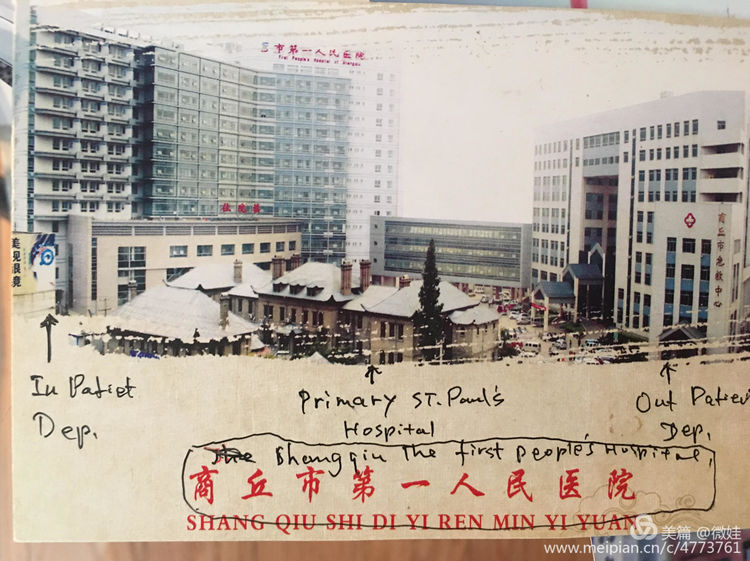 市第一人民医院
First People's Hospital of Shangqiu
住院楼
美见眼镜
商丘市急救中心
In Patiet
Dep.
Primary ST. Paul's
Hospital
Out Patien
Dep.
Shangqiu The first people's Hospital,
商丘市第一人民医院
SHANG QIU SHI DI YI REN MIN YI YUAN
美篇 @微娃
www.meipian.cn/c/4773761